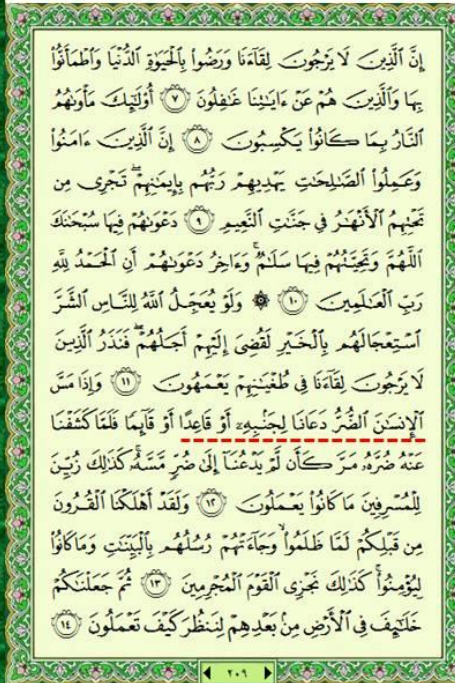 إِنَّ ٱلَّذِينَ لَا يَرْجُونَ لِقَآءَنَا وَرَضُوا۟ بِٱلْحَيَوٰةِ ٱلدُّنْيَا وَٱطْمَأَنُّوا۟
بِهَا وَٱلَّذِينَ هُمْ عَنْ ءَايَـٰتِنَا غَـٰفِلُونَ ٧ أُو۟لَـٰٓئِكَ مَأْوَىٰهُمُ
ٱلنَّارُ بِمَا كَانُوا۟ يَكْسِبُونَ ٨ إِنَّ ٱلَّذِينَ ءَامَنُوا۟
وَعَمِلُوا۟ ٱلصَّـٰلِحَـٰتِ يَهْدِيهِمْ رَبُّهُم بِإِيمَـٰنِهِمْ ۖ تَجْرِى مِن
تَحْتِهِمُ ٱلْأَنْهَـٰرُ فِى جَنَّـٰتِ ٱلنَّعِيمِ ٩ دَعْوَىٰهُمْ فِيهَا سُبْحَـٰنَكَ
ٱللَّهُمَّ وَتَحِيَّتُهُمْ فِيهَا سَلَـٰمٌ ۚ وَءَاخِرُ دَعْوَىٰهُمْ أَنِ ٱلْحَمْدُ لِلَّهِ
رَبِّ ٱلْعَـٰلَمِينَ ١٠ ۞ وَلَوْ يُعَجِّلُ ٱللَّهُ لِلنَّاسِ ٱلشَّرَّ
ٱسْتِعْجَالَهُم بِٱلْخَيْرِ لَقُضِىَ إِلَيْهِمْ أَجَلُهُمْ ۖ فَنَذَرُ ٱلَّذِينَ
لَا يَرْجُونَ لِقَآءَنَا فِى طُغْيَـٰنِهِمْ يَعْمَهُونَ ١١ وَإِذَا مَسَّ
ٱلْإِنسَـٰنَ ٱلضُّرُّ دَعَانَا لِجَنۢبِهِۦٓ أَوْ قَاعِدًا أَوْ قَآئِمًا فَلَمَّا كَشَفْنَا
عَنْهُ ضُرَّهُۥ مَرَّ كَأَن لَّمْ يَدْعُنَآ إِلَىٰ ضُرٍّ مَّسَّهُۥ ۚ كَذَٰلِكَ زُيِّنَ
لِلْمُسْرِفِينَ مَا كَانُوا۟ يَعْمَلُونَ ١٢ وَلَقَدْ أَهْلَكْنَا ٱلْقُرُونَ
مِن قَبْلِكُمْ لَمَّا ظَلَمُوا۟ ۙ وَجَآءَتْهُمْ رُسُلُهُم بِٱلْبَيِّنَـٰتِ وَمَا كَانُوا۟
لِيُؤْمِنُوا۟ ۚ كَذَٰلِكَ نَجْزِى ٱلْقَوْمَ ٱلْمُجْرِمِينَ ١٣ ثُمَّ جَعَلْنَـٰكُمْ
خَلَـٰٓئِفَ فِى ٱلْأَرْضِ مِنۢ بَعْدِهِمْ لِنَنظُرَ كَيْفَ تَعْمَلُونَ ١٤
٢٠٩